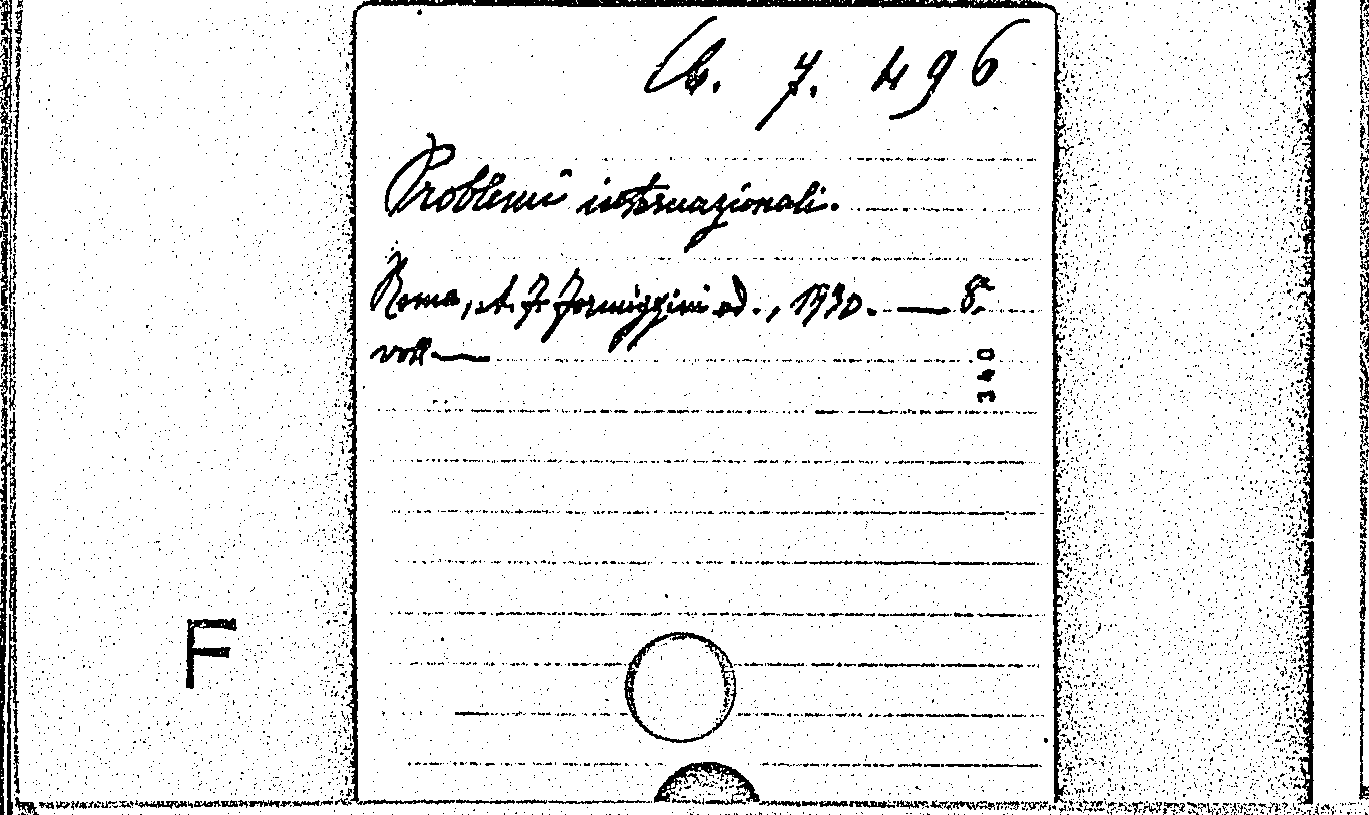 Cb. 7. 496
Problemi internazionali.
Roma, A. F. Formiggini ed., 1930. — 8.°
voll —
340
F